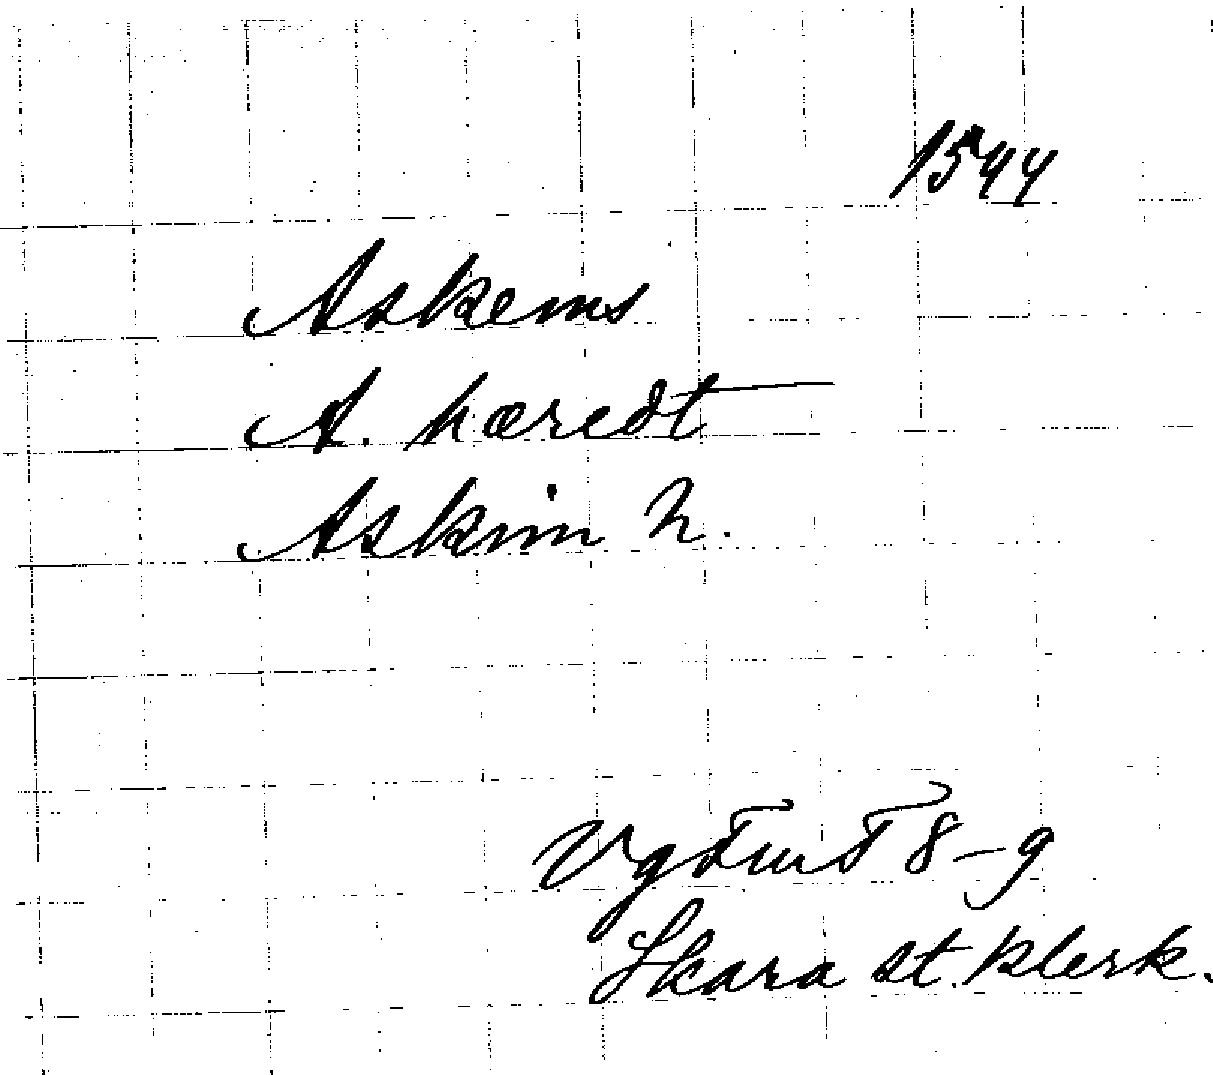 1544
Askems
A. hæredt
Askim h.
Vg FmT 8-9
Skara st. klerk.